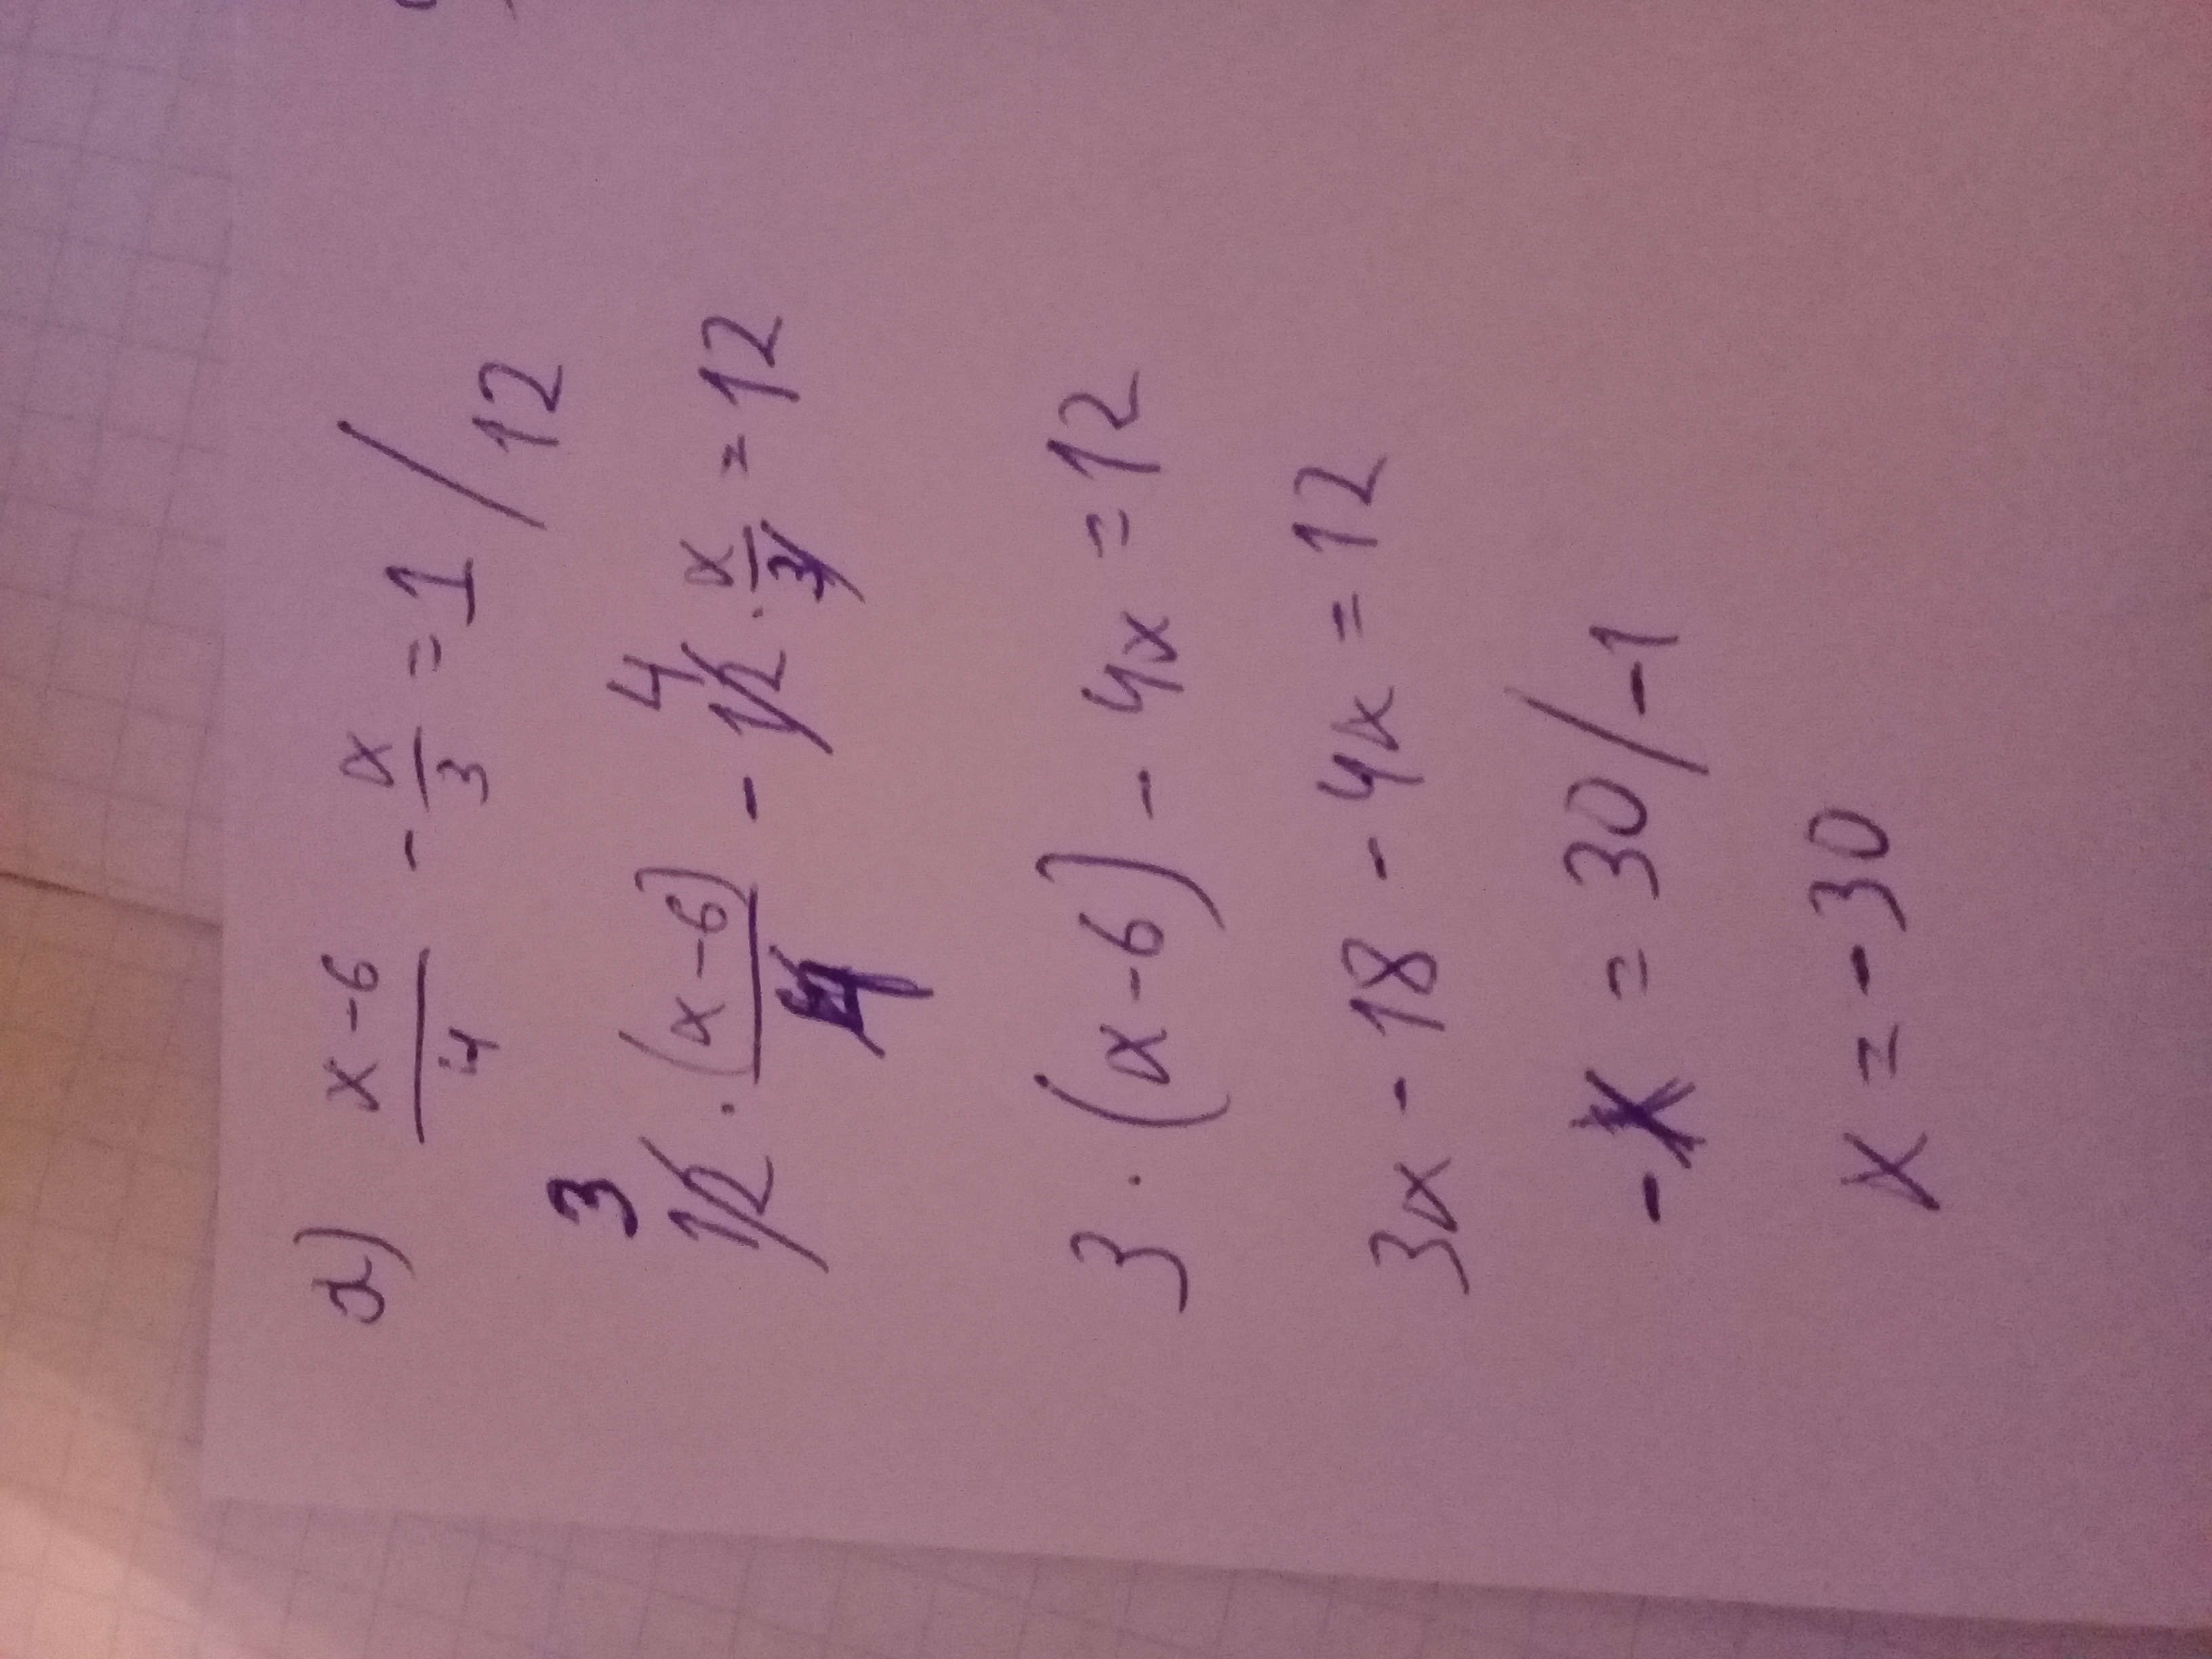 a) x-6/4 - x/3 = 1 / 12
3 12 · (x-6)/4 - 4 12 · x/3 = 12
3 · (x-6) - 4x = 12
3x - 18 - 4x = 12
-x = 30 / -1
x = -30